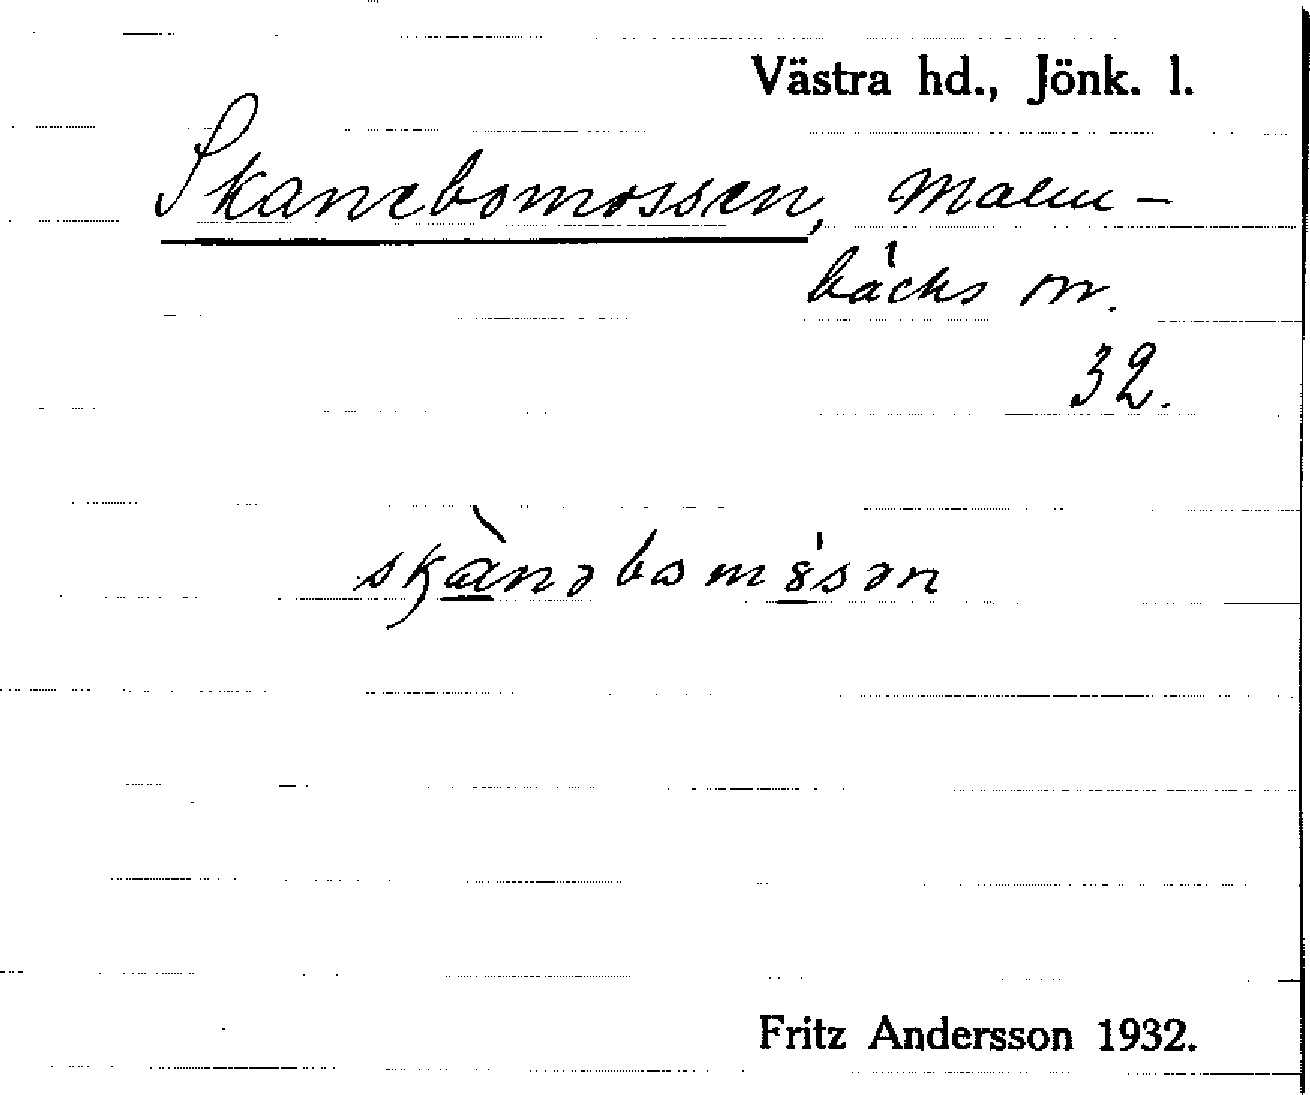 Västra hd., Jönk. l.
Skanebomossen, Malm-
bäcks sn.
32.
skànəbomȣ́sən
Fritz Andersson 1932.